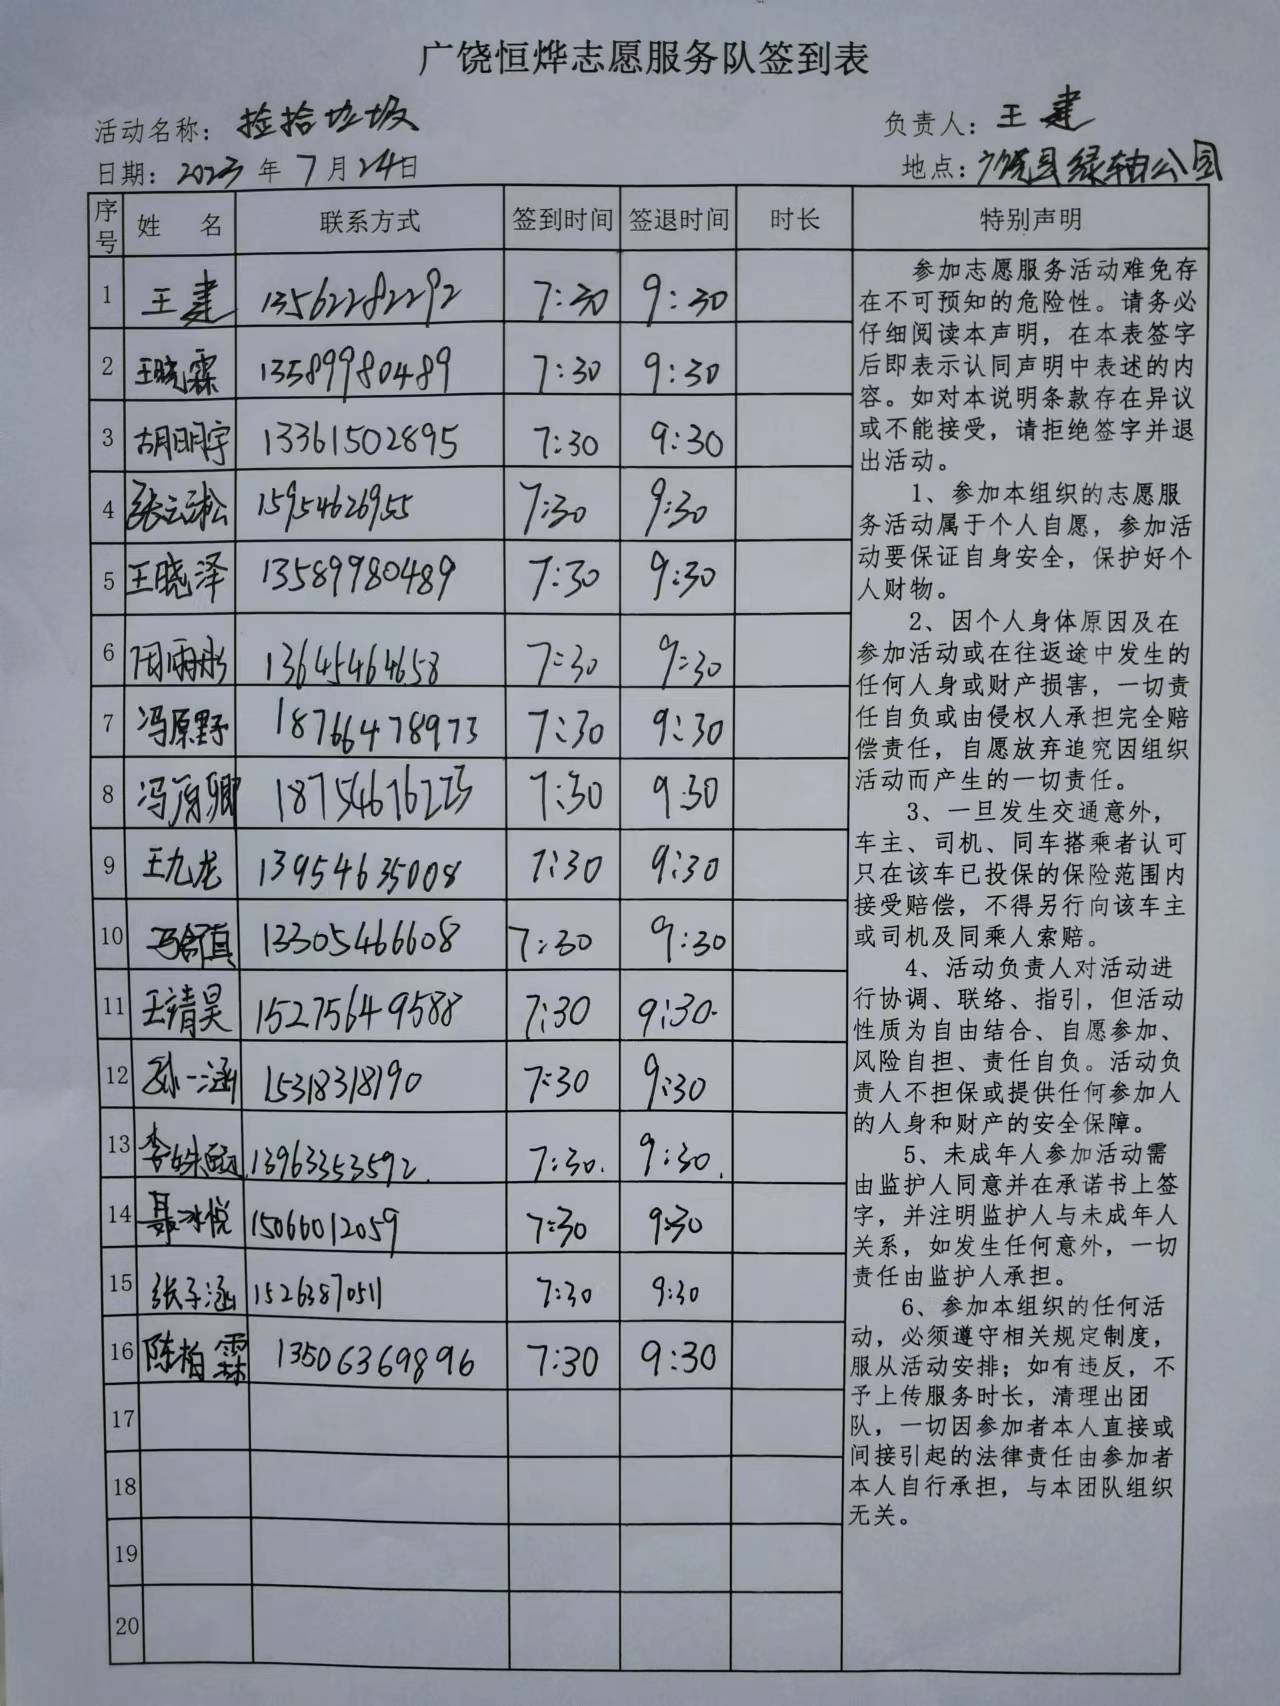 广饶恒烨志愿服务队签到表
活动名称：捡拾垃圾 负责人：王建
日期：2023年7月24日 地点：广饶县绿轴公园
序号 姓 名 联系方式 签到时间 签退时间 时长 特别声明
1 王建 13562282292 7:30 9:30
2 王晓霖 13589980489 7:30 9:30
3 胡明宇 13361502895 7:30 9:30
4 张云淞 15954626955 7:30 9:30
5 王晓泽 13589980489 7:30 9:30
6 周雨彤 13645464658 7:30 9:30
7 冯原野 18766478973 7:30 9:30
8 冯原卿 7:30 9:30
9 王九龙 13954635008 7:30 9:30
10 13305466608 7:30 9:30
11 王靖昊 15275649588 7:30 9:30.
12 孙一涵 15318318190 7:30 9:30
13 李姝 13963353592. 7:30. 9:30.
14 聂冰悦 15066012059 7:30 9:30
15 张子涵 15263870511 7:30 9:30
16 陈柏霖 13506369896 7:30 9:30
17
18
19
20
参加志愿服务活动难免存
在不可预知的危险性。请务必
仔细阅读本声明，在本表签字
后即表示认同声明中表述的内
容。如对本说明条款存在异议
或不能接受，请拒绝签字并退
出活动。
1、参加本组织的志愿服
务活动属于个人自愿，参加活
动要保证自身安全，保护好个
人财物。
2、因个人身体原因及在
参加活动或在往返途中发生的
任何人身或财产损害，一切责
任自负或由侵权人承担完全赔
偿责任，自愿放弃追究因组织
活动而产生的一切责任。
3、一旦发生交通意外，
车主、司机、同车搭乘者认可
只在该车已投保的保险范围内
接受赔偿，不得另行向该车主
或司机及同乘人索赔。
4、活动负责人对活动进
行协调、联络、指引，但活动
性质为自由结合、自愿参加、
风险自担、责任自负。活动负
责人不担保或提供任何参加人
的人身和财产的安全保障。
5、未成年人参加活动需
由监护人同意并在承诺书上签
字，并注明监护人与未成年人
关系，如发生任何意外，一切
责任由监护人承担。
6、参加本组织的任何活
动，必须遵守相关规定制度，
服从活动安排；如有违反，不
予上传服务时长，清理出团
队，一切因参加者本人直接或
间接引起的法律责任由参加者
本人自行承担，与本团队组织
无关。